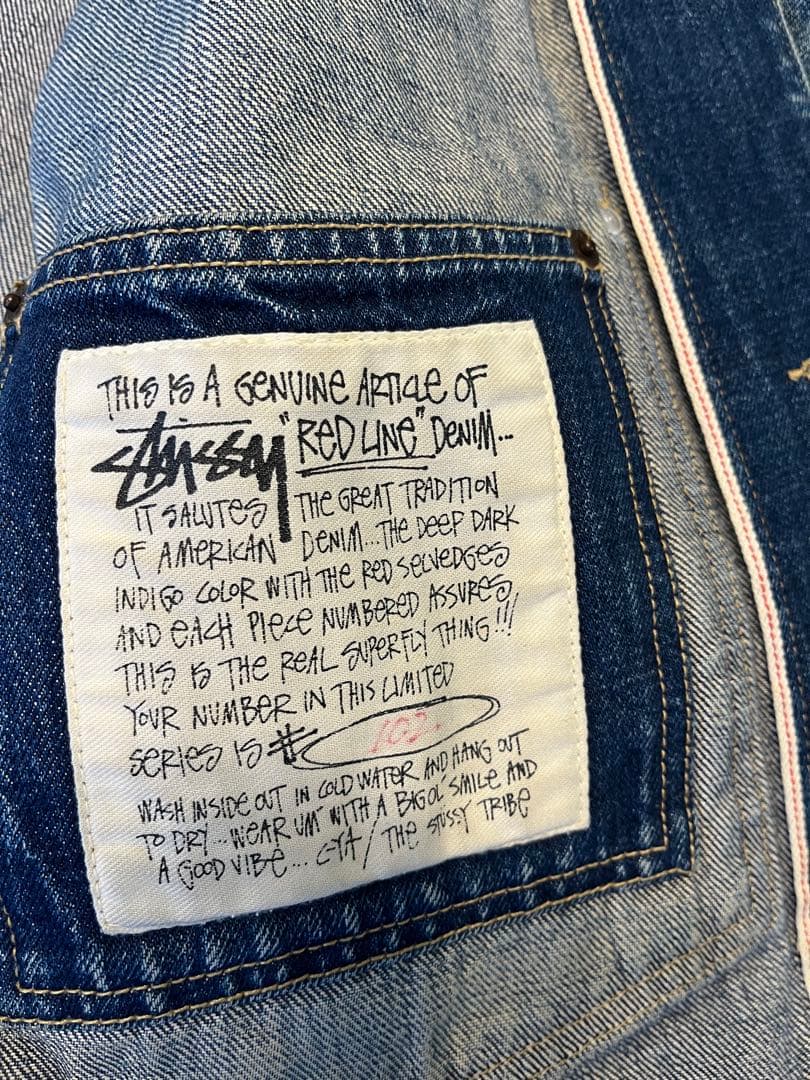 THIS IS A GENUINE ARTICLE OF
STÜSSY "RED LINE" DENIM...
IT SALUTES THE GREAT TRADITION
OF AMERICAN DENIM...THE DEEP DARK
INDIGO COLOR WITH THE RED SELVEDGES
AND EACH PIECE NUMBERED ASSURES
THIS IS THE REAL SUPERFLY THING!!!
YOUR NUMBER IN THIS LIMITED
SERIES IS # 102
WASH INSIDE OUT IN COLD WATER AND HANG OUT
TO DRY...WEAR UM' WITH A BIG OL' SMILE AND
A GOOD VIBE... C-YA / THE STUSSY TRIBE